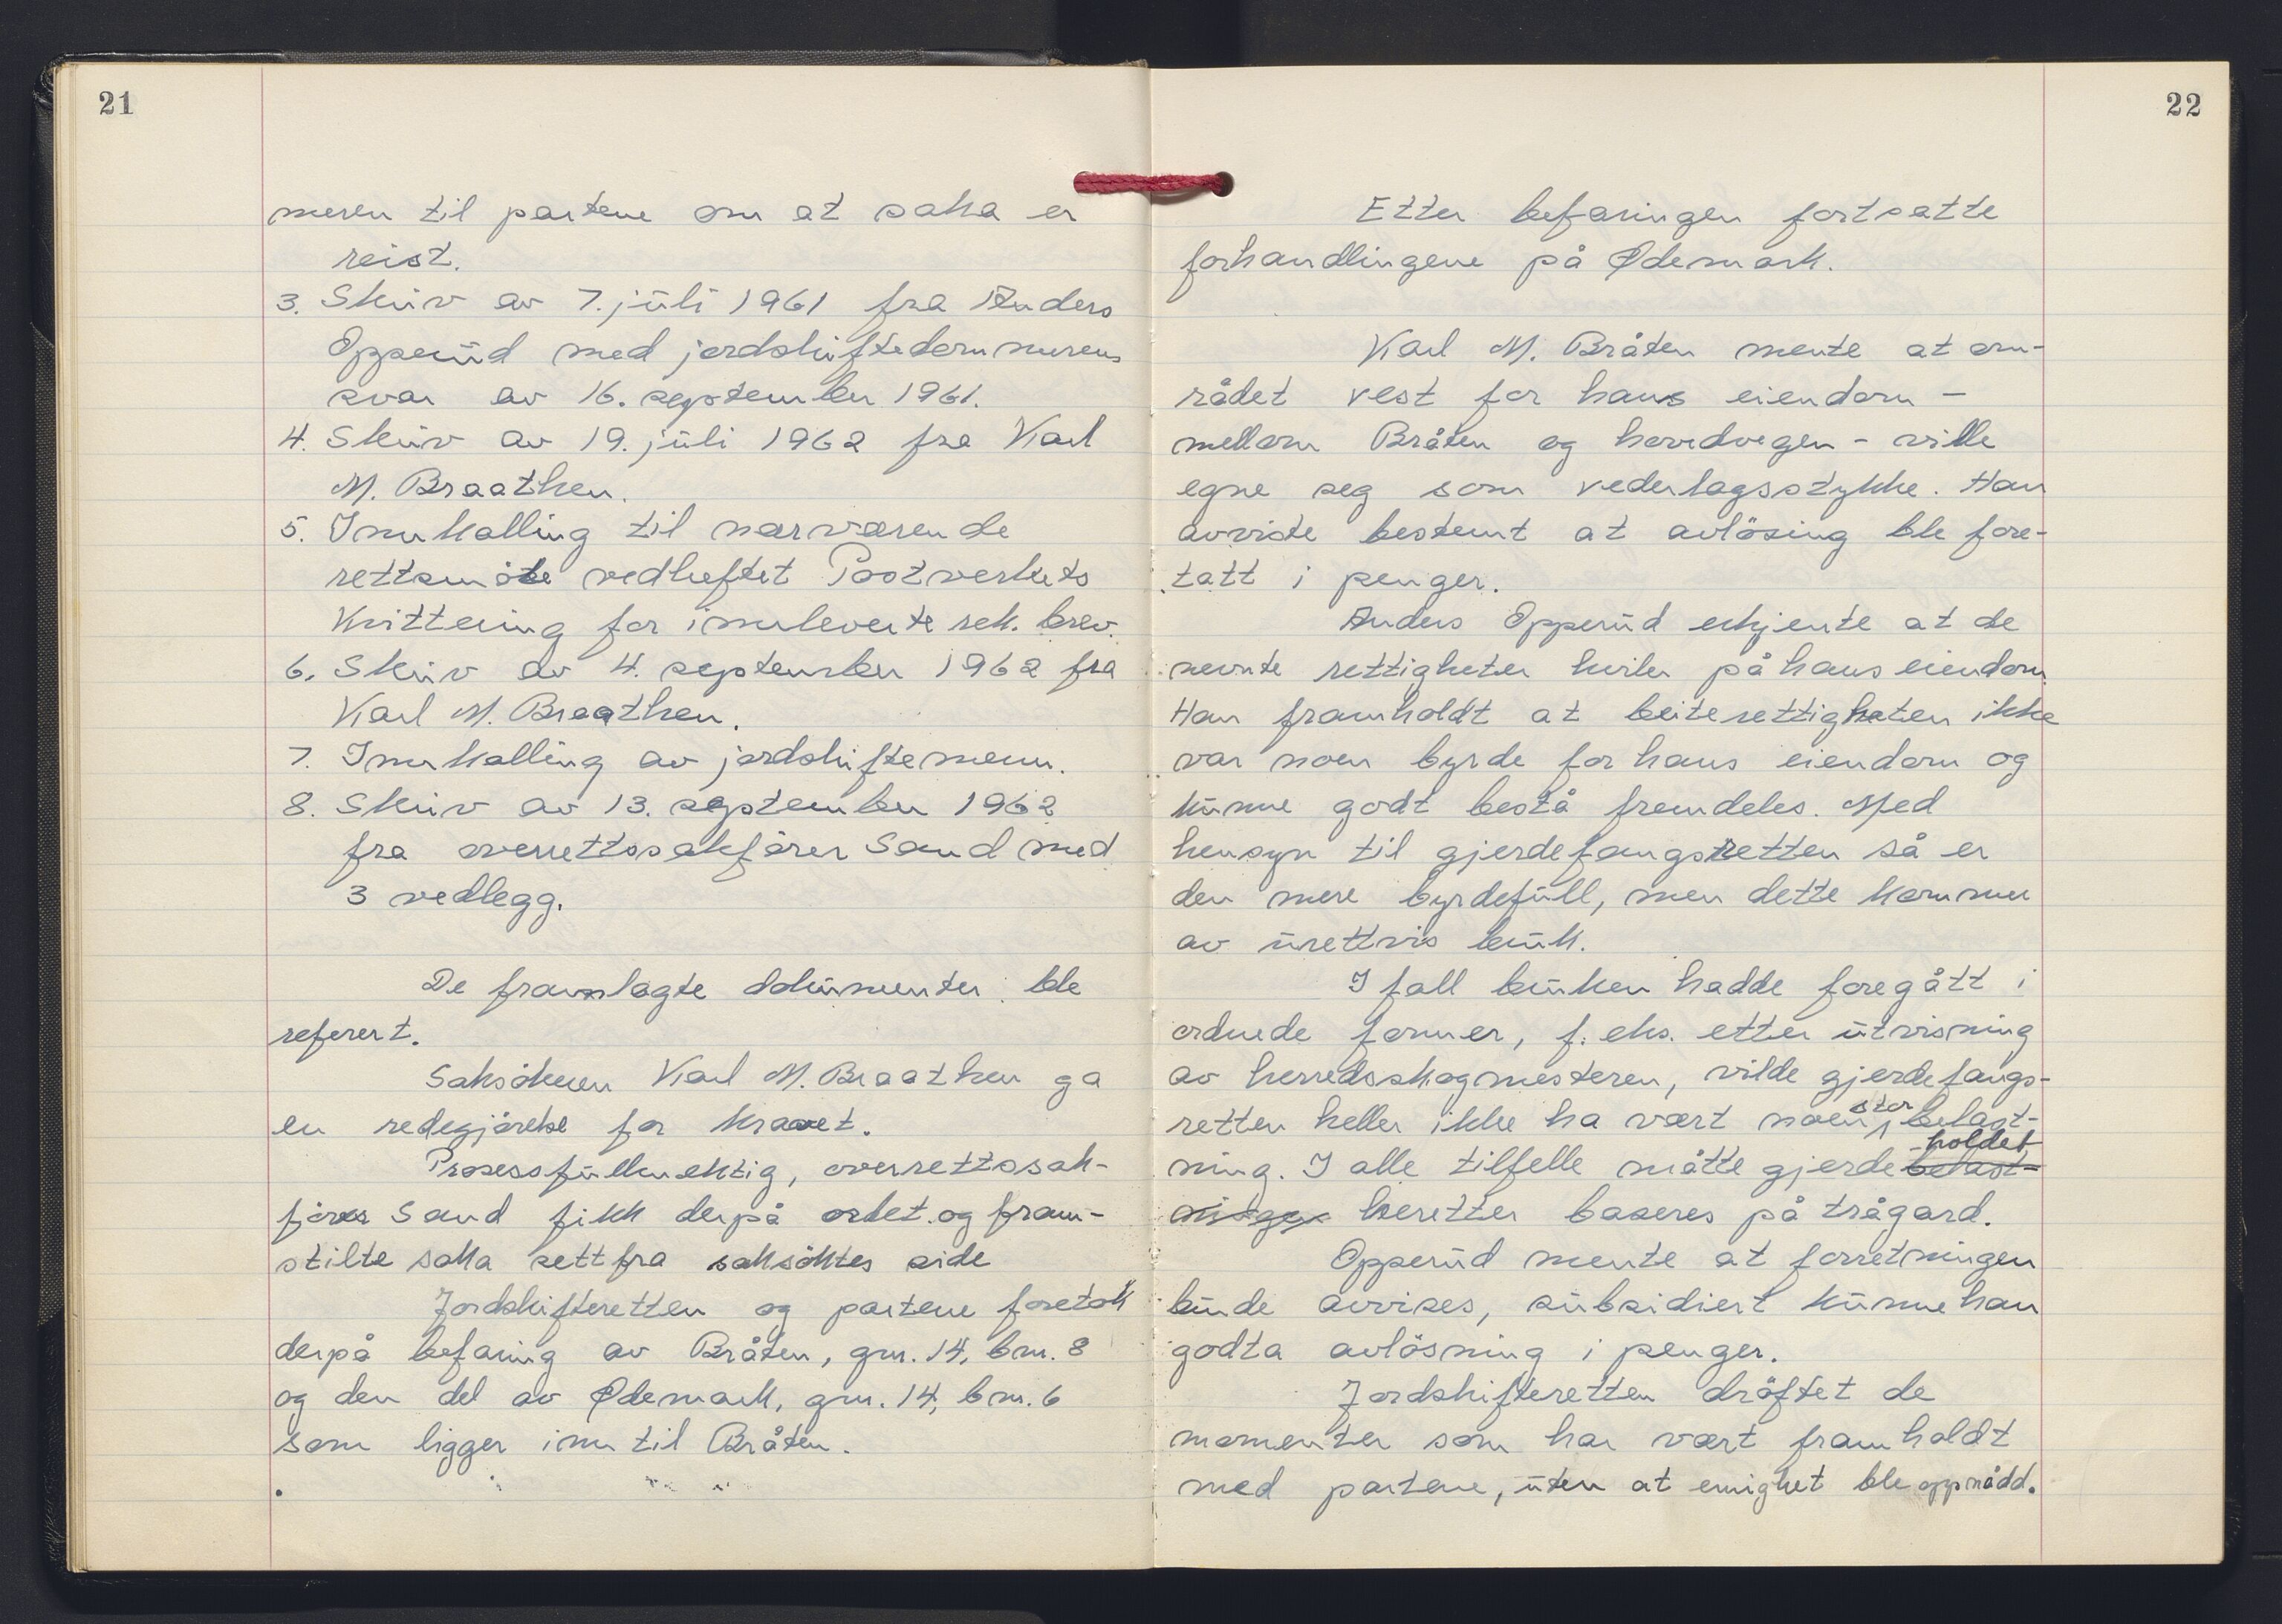 21
meren til partene om at saka er
reist.
3. Skriv av 7. juli 1961 fra Anders
Opperud med jordskiftedommerens
svar av 16. september 1961.
4. Skriv av 19. juli 1962 fra Karl
M. Braathen.
5. Innkalling til nærværende
rettsmöte vedheftet Postverkets
kvittering for innleverte rek. brev.
6. Skriv av 4. september 1962 fra
Karl M. Braathen.
7. Innkalling av jordskiftemenn.
8. Skriv av 13. september 1962
fra overrettssakförer Sand med
3 vedlegg.
De framlagte dokumenter ble
referert.
Saksökeren Karl M. Braathen ga
en redegjörelse for kravet.
Prosessfullmektig, overrettssak-
förer Sand fikk derpå ordet og fram-
stilte saka sett fra saksöktes side
Jordskifteretten og partene foretok
derpå befaring av Bråten, gnr. 14, bnr. 8
og den del av Ødemark, gnr. 14, bnr. 6
som ligger inn til Bråten.
22
Etter befaringen fortsatte
forhandlingene på Ødemark.
Karl M. Bråten mente at om-
rådet vest for hans eiendom -
mellom Bråten og hovedvegen - ville
egne seg som vederlagsstykke. Han
avviste bestemt at avlösing ble fore-
tatt i penger.
Anders Opperud erkjente at de
nevnte rettigheter hviler på hans eiendom.
Han framholdt at beiterettigheten ikke
var noen byrde for hans eiendom og
kunne godt bestå fremdeles. Med
hensyn til gjerdefangsretten så er
den mere byrdefull, men dette kommer
av urettvis bruk.
I fall bruken hadde foregått i
ordnede former, f. eks. etter utvisning
av herredsskogmesteren, vilde gjerdefangs-
retten heller ikke ha vært noen stor belast-
ning. I alle tilfelle måtte gjerdeholdet belast-
ningen heretter baseres på trågard.
Opperud mente at forretningen
burde avvises, subsidiert kunne han
godta avlösning i penger.
Jordskifteretten dröftet de
momenter som har vært framholdt
med partene, uten at enighet ble oppnådd.